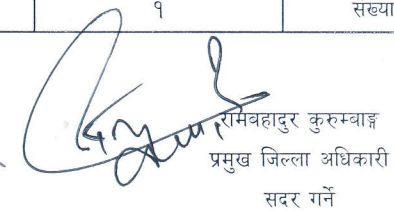 १ संख्या
रामबहादुर कुरुम्बाङ्ग
प्रमुख जिल्ला अधिकारी
सदर गर्ने